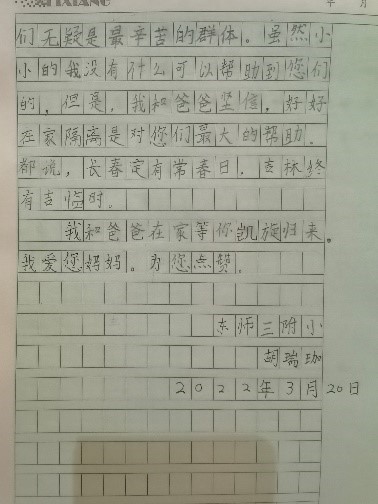 年 月
们无疑是最辛苦的群体。虽然小
小的我没有什么可以帮助到您们
的，但是，我和爸爸坚信，好好
在家隔离是对您们最大的帮助。
都说，长春定有常春日，吉林终
有吉临时。
我和爸爸在家等你凯旋归来。
我爱您妈妈。为您点赞。
东师三附小
胡瑞珈
2022年3月20日